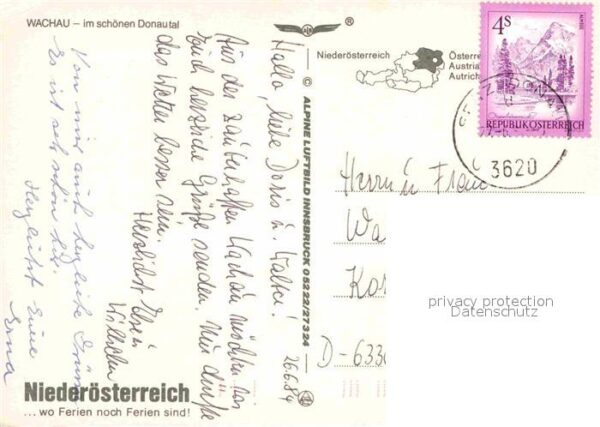 WACHAU – im schönen Donautal
®
Niederösterreich
Österreich
Austria
Autriche
4S
AMSEE
REPUBLIK ÖSTERREICH
3620
© ALPINE LUFTBILD INNSBRUCK 05222/27324
Hallo, liebe Doris u. Walter!
26.6.84
Aus der zauberhaften Wachau möchten wir
Euch herzliche Grüße senden. Nur dürfte
das Wetter besser sein.
Herzlichst
Wilhelm
Von mir auch herzliche Grüße
Es ist sehr schön hier.
Herzlichst Eure
Erna
Herrn u Frau
Wa
D-6330
privacy protection
Datenschutz
Niederösterreich
... wo Ferien noch Ferien sind!